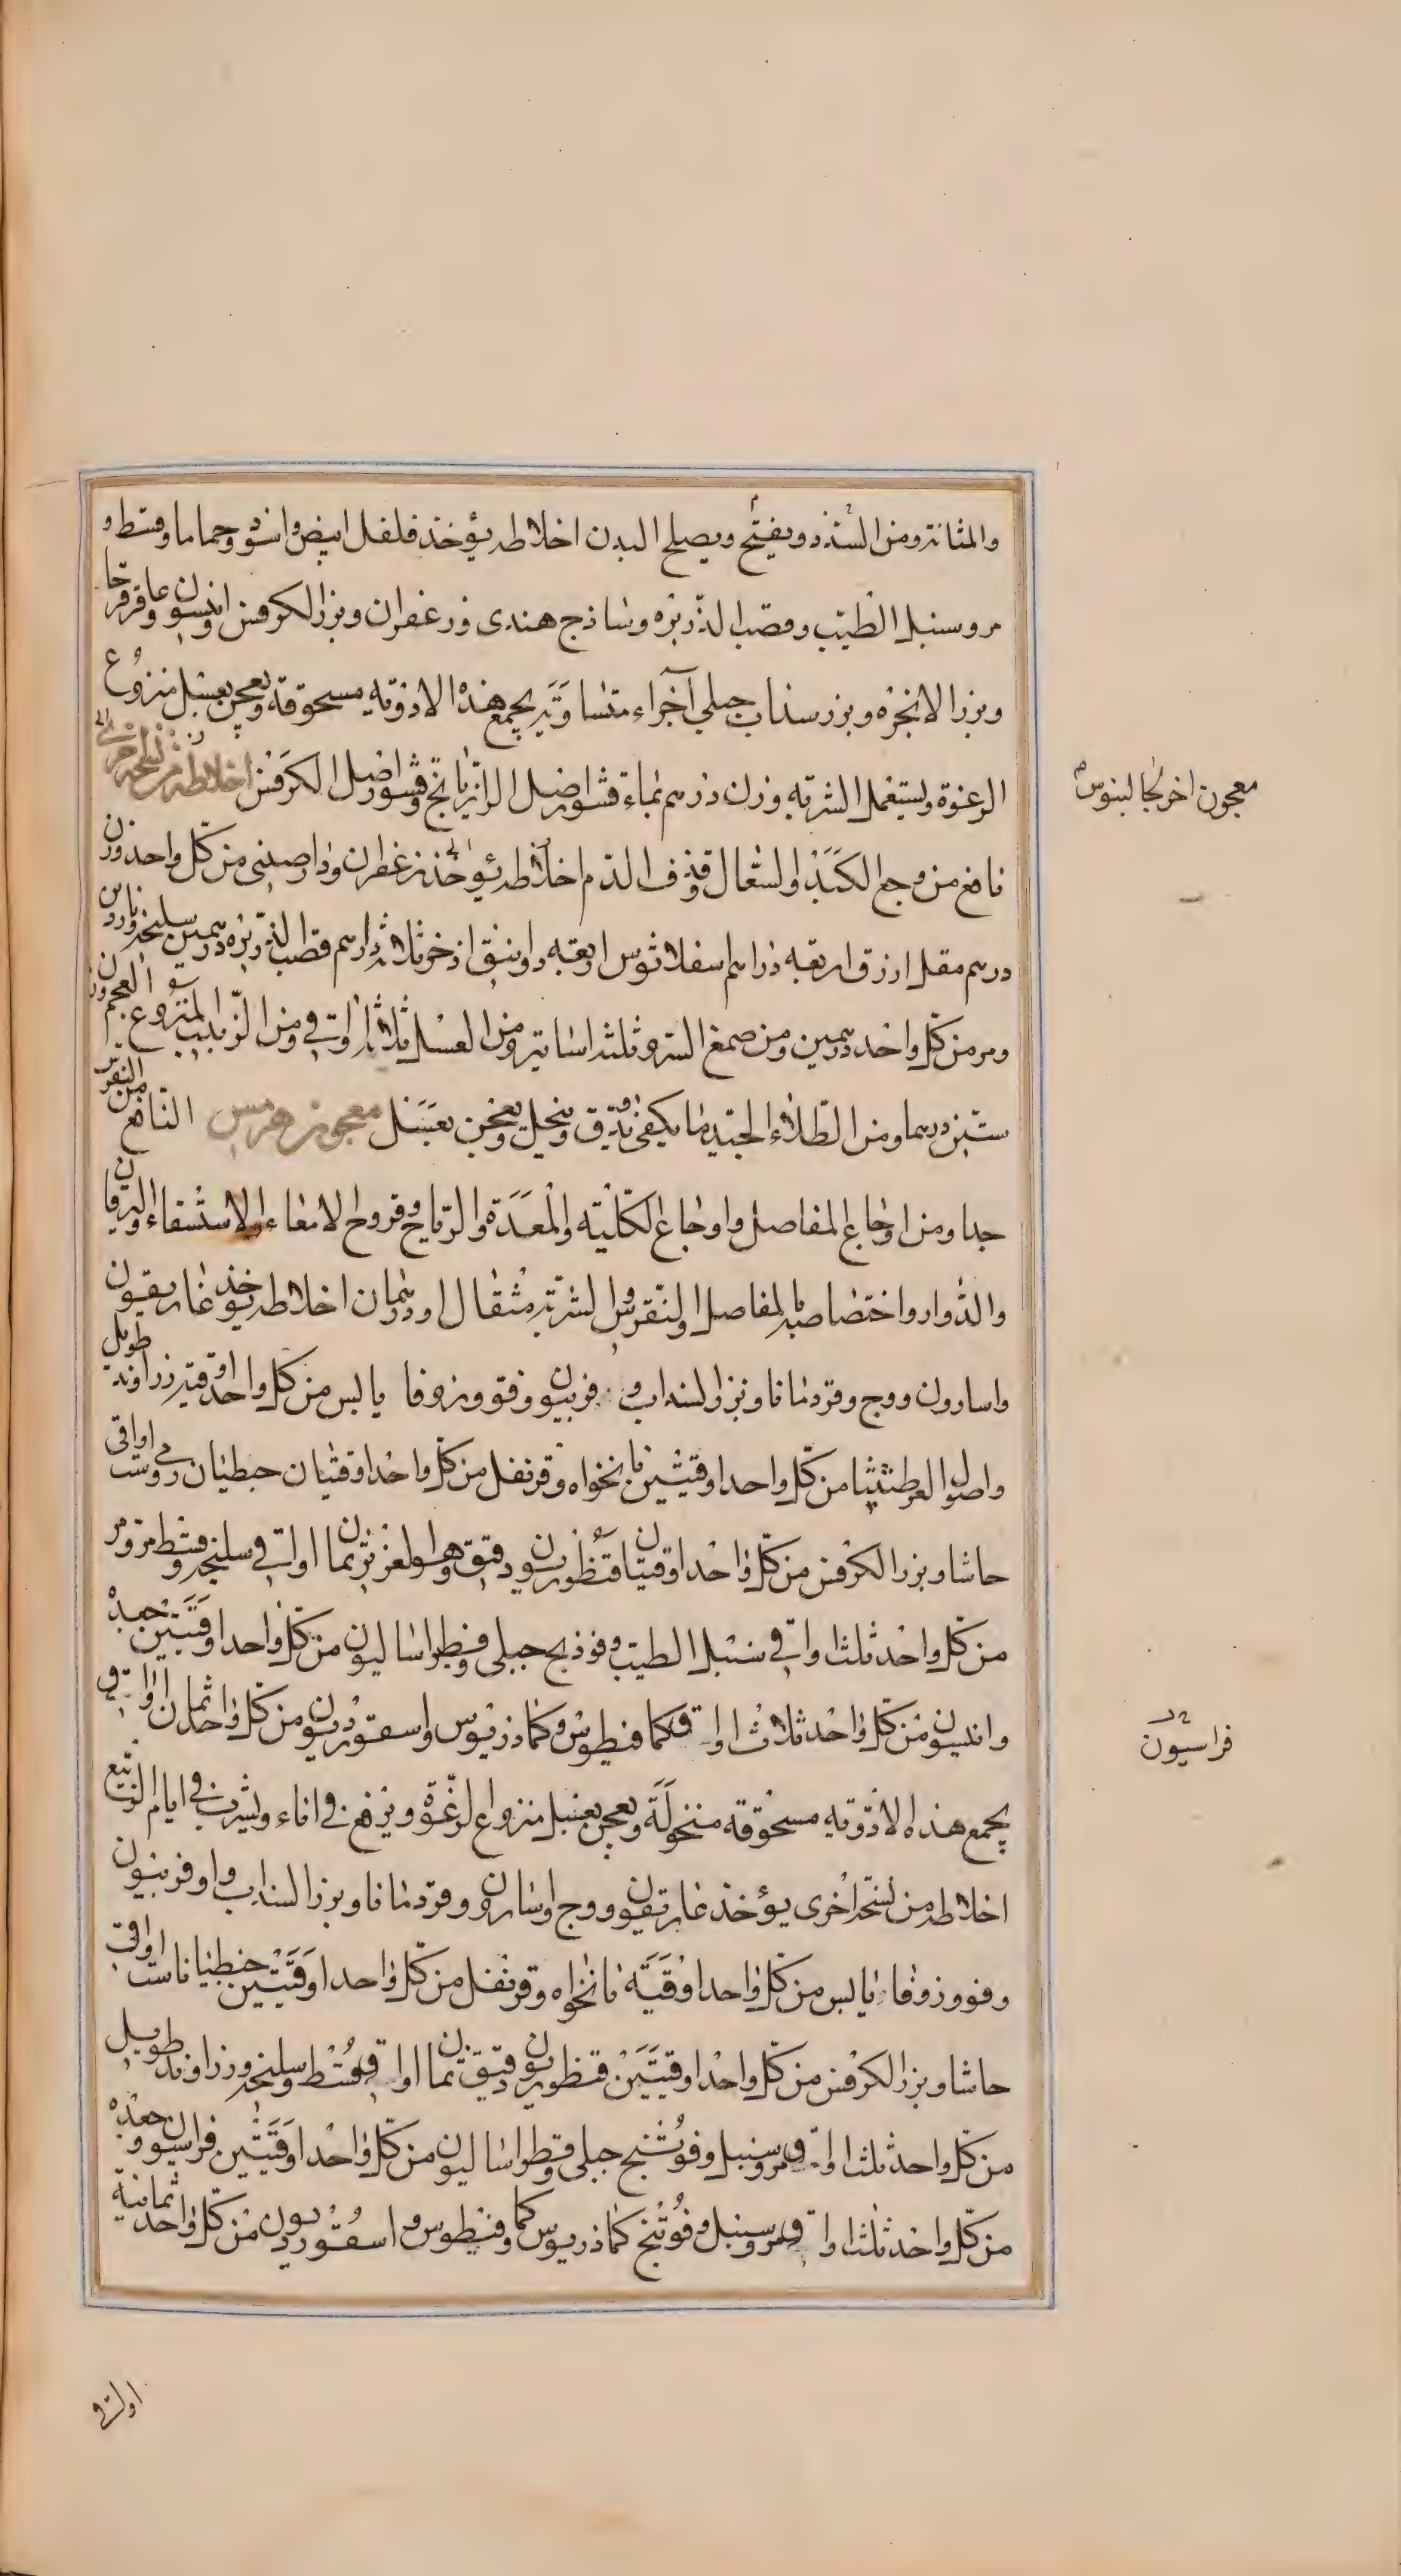 والمثانة ومن السدد ويفتح ويصلح البدن اخلاطه يؤخذ فلفل ابيض واسود وحماما وقسط و
مر وسنبل الطيب وقصب الذريره وساذج هندى وزعفران وبزر الكرفس وانيسون وعاقرقرحا
وبزر الانجره وبزر سذاب جبلي اجزاء متساويه يجمع هذه الادويه مسحوقة ويعجن بعسل منزوع
الرغوة ويستعمل الشربه وزن درهم بماء قشور اصل الرازيانج وقشور اصل الكرفس اخلاطه من نسخة اخرى
معجون اخر لجالينوس
نافع من وجع الكبد والسعال وقذف الدم اخلاطه يؤخذ زعفران ودارصينى من كل واحد وزن
درهم مقل ازرق اربعه دراهم اسفلاثوس اربعه دوانيق اذخر ثلاثة دراهم قصب الذريره درهمين سليخه وناردين
ومر من كل واحد درهمين ومن صمغ السرو ثلثه اساتير ومن العسل ثلاثة اواقي ومن الزبيب المنزوع العجم وزن
ستين درهما ومن الطلاء الجيد ما يكفى يدق وينخل ويعجن بعسل معجون هرمس النافع من النقرس
جدا ومن اوجاع المفاصل واوجاع الكليه والمعدة والرياح وقروح الامعاء والاستسقاء واليرقان
والدوار واختصاصه بالمفاصل والنقرس والشربه مثقال او درهمان اخلاطه يؤخذ غاريقون
واسارون ووج وقردمانا وبزر السذاب و فربيون وفوو وزوفا يابس من كل واحد اوقيه زراوند طويل
واصول العرطنيثا من كل واحد اوقيتين نانخواه وقرنفل من كل واحد اوقيتان جنطيان رومي ست اواقي
حاشا وبزر الكرفس من كل واحد اوقيتان قنطوريون دقيق وهو الغزير ثمان اواقي سليخه وقسط مر ومر
من كل واحد ثلث اواقي سنبل الطيب وفوذنج جبلى وفطراساليون من كل واحد اوقيتين جعده
وانيسون من كل واحد ثلاث اواق كمافيطوس وكماذريوس واسقورديون من كل واحد ثمان اواقي
فراسيون
يجمع هذه الادويه مسحوقه منخولة ويعجن بعسل منزوع الرغوة ويرفع في اناء ويشرب في ايام الربيع
اخلاطه من نسخة اخرى يؤخذ غاريقون ووج واسارون وقردمانا وبزر السذاب و اوفربيون
وفوو وزوفا يابس من كل واحد اوقيه نانخواه وقرنفل من كل واحد اوقيتين جنطيانا ست اواقي
حاشا وبزر الكرفس من كل واحد اوقيتين قنطوريون دقيق ثمان اواق قسط وسليخه وزراوند طويل
من كل واحد ثلث اواق ومر وسنبل وفوتنج جبلى وفطراساليون من كل واحد اوقيتين فراسيون وجعده
من كل واحد ثلث اواق ومر وسنبل وفوتنج كماذريوس وكمافيطوس و اسقورديون من كل واحد ثمانية